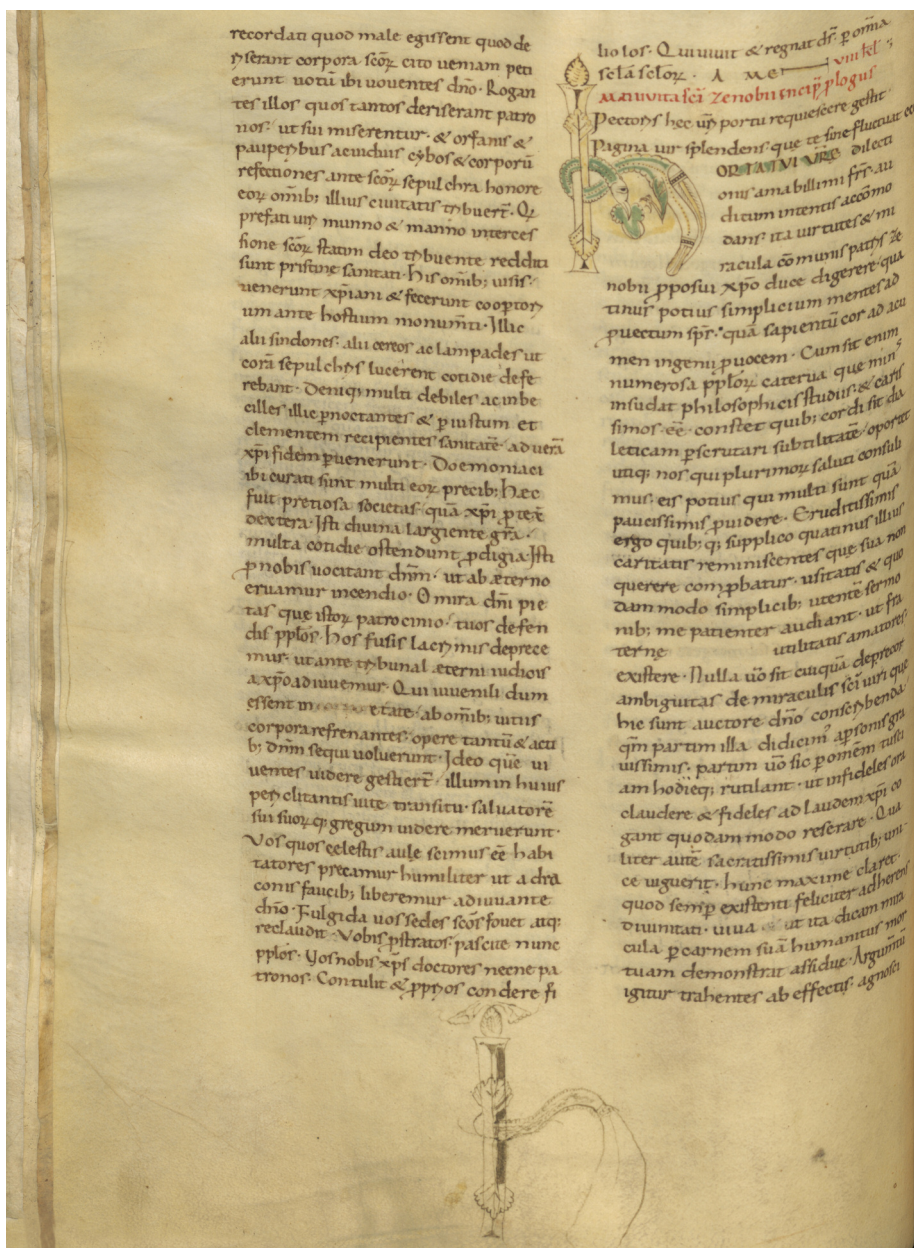 recordati quod male egissent quod de
serant corpora scoꝝ cito veniam peti
erunt votū ibi voventes dn̄o · Rogan
tes illos quos tantos deriserant patro
nos · ut sui miserentur · & orfanis &
ac viduis cybos & corporū
refectiones ante scoꝝ sepulchra honore
eoꝝ om̄ib; illius civitatis
prefati munno & manno interces
sione scoꝝ statim deo reddita
sunt pristine sanitati · his om̄ib; visis ·
venerunt xp̄iani & fecerunt
um ante hostium monum̄ti · Illic
alii sindones · alii cereos ac lampades ut
corā lucerent cotidie defe
rebant · Deniq; multi debiles ac inbe
cilles illic ꝑnoctantes & ꝑ iustum et
clementem recipientes sanitatē · ad verā
xp̄i fidem ꝑvenerunt · Doemoniaci
ibi curati sunt multi eoꝝ precib; hæc
fuit pretiosa societas · quā xp̄i ꝓtexē
dextera · Isti divina largiente gr̄a ·
multa cotidie ostendunt ꝓdigia · Isti
ꝓ nobis vocitant dn̄m · ut ab æterno
eruamur incendio · O mira dn̄i pie
tas que istoꝝ patrocinio · tuos defen
dis pp̄los · hos fusis lacrymis deprece
mur · ut ante æterni iudicis
a xp̄o adiuvemur · Qui iuvenili dum
essent in etate · ab om̄ib; vitiis
corpora refrenantes · opere tantū & actu
b; dn̄m sequi voluerunt · Ideo que vi
ventes videre gestierт̄ · illum in huius
transitu · salvatorē
sui suoꝝ q; gregum videre meruerunt ·
Vos quos cęlestis aule scimus eē habi
tatores precamur humiliter ut a dra
conis faucib; liberemur adiuvante
dn̄o · Fulgida vos sedes scōs fovet atq;
reclaudit · Vobis ꝓstratos · pascite nunc
pp̄los · Vos nobis xp̄s doctores necne pa
tronos · Contulit & condere fi
liolos · Qui vivit & regnat ds̄ · ꝑ om̄ia
sclā scloꝝ · A ME viii kl̄ ;
MAI vita sci Zenobii incip̄ ꝓlogus
hec portu requiescere gestit ·
Pagina vir splendens · que te sine fluctuat
dilecti
onis amabillimi fr̄s · au
ditum intentis accōmo
dans · ita virtutes & mi
racula cōmunis ze
nobii ꝓposui xp̄o duce digerere · qua
tinus potius simplicium mentes ad
ꝓvectum sp̄s · quā sapientū cor ad acu
men ingenii ꝓvocem · Cum sit enim
numerosa pp̄loꝝ caterva que min
insudat philosophicis studiis · & caris
simos · eē · constet quib; cordi sit dia
leticam ꝑscrutari subtilitatē · oportet
utiq; nos qui plurimoꝝ saluti consuli
mus · eis potius qui multi sunt quā
paucissimis ꝓvidere · Eruditissimis
ergo quib; q; supplico quatinus illius
caritatis reminiscentes que sua non
querere comꝓbatur · usitatis & quo
dam modo simplicib; utentē sermo
nib; me patienter audiant · ut fra
ternę utilitatis amatores
existere · Nulla v̄o sit cuiquā deprecor
ambiguitas de miraculis sci viri que
hic sunt auctore dn̄o
qm̄ partim illa didicim a ꝑsonis gra
vissimis · partim v̄o sic ꝑ omēm tusci
am hodieq; rutilant · ut infideles ora
claudere & fideles ad laudem xp̄i co
gant quodam modo reserare · Qua
liter autē sacratissimis virtutib; uni
ce viguerit · hunc maxime claret
quod semꝑ existenti feliciter adherens
divinitati · viva ut ita dicam mira
cula ꝑ carnem suā humanitus mor
tuam demonstrat assidue · Argumtū
igitur trahentes ab effectis · agnosci